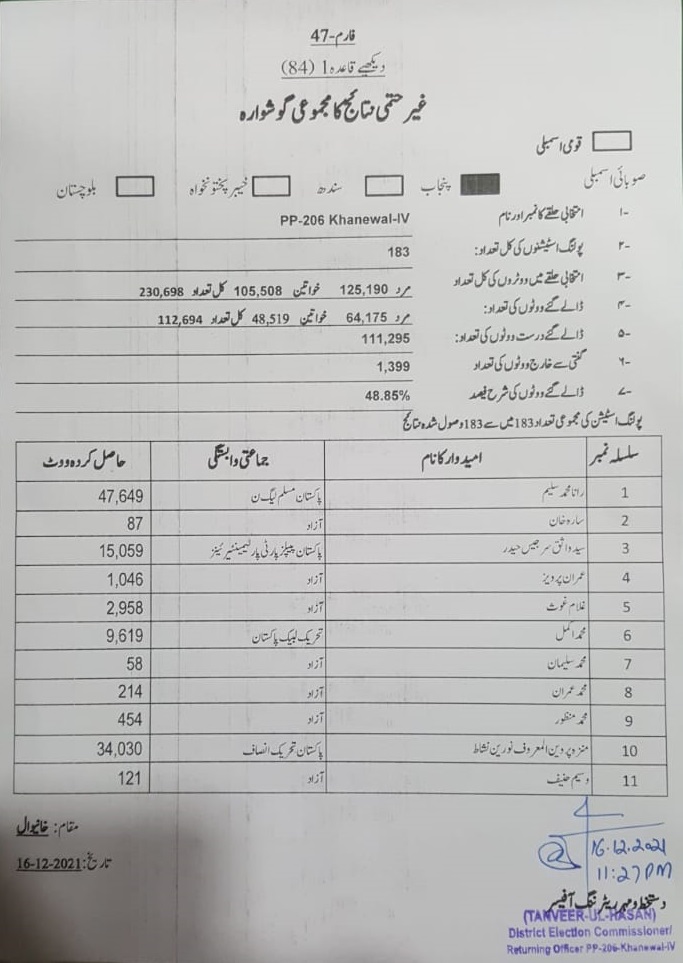 فارم-47
دیکھیے قاعدہ 1 (84)
غیر حتمی نتائج کا مجموعی گوشوارہ
قومی اسمبلی
صوبائی اسمبلی پنجاب سندھ خیبر پختونخواہ بلوچستان
۱- انتخابی حلقے کا نمبر اور نام PP-206 Khanewal-IV
۲- پولنگ اسٹیشنوں کی کل تعداد: 183
۳- انتخابی حلقے میں ووٹروں کی کل تعداد مرد 125,190 خواتین 105,508 کل تعداد 230,698
۴- ڈالے گئے ووٹوں کی تعداد: مرد 64,175 خواتین 48,519 کل تعداد 112,694
۵- ڈالے گئے درست ووٹوں کی تعداد: 111,295
۶- گنتی سے خارج ووٹوں کی تعداد 1,399
۷- ڈالے گئے ووٹوں کی شرح فیصد 48.85%
پولنگ اسٹیشن کی مجموعی تعداد 183 میں سے 183 وصول شدہ نتائج
سلسلہ نمبر امیدوار کا نام جماعتی وابستگی حاصل کردہ ووٹ
1 رانا محمد سلیم پاکستان مسلم لیگ ن 47,649
2 سارہ خان آزاد 87
3 سید واثق سرجیس حیدر پاکستان پیپلز پارٹی پارلیمینٹیرینز 15,059
4 عمران پرویز آزاد 1,046
5 غلام غوث آزاد 2,958
6 محمد اکمل تحریک لبیک پاکستان 9,619
7 محمد سلیمان آزاد 58
8 محمد عمران آزاد 214
9 محمد منظور آزاد 454
10 منزہ پروین المعروف نورین نشاط پاکستان تحریک انصاف 34,030
11 وسیم حنیف آزاد 121
مقام: خانیوال
تاریخ: 16-12-2021
16.12.2021
11:27 PM
دستخط و مہر ریٹرننگ آفیسر
(TANVEER-UL-HASAN)
District Election Commissioner/
Returning Officer PP-206-Khanewal-IV